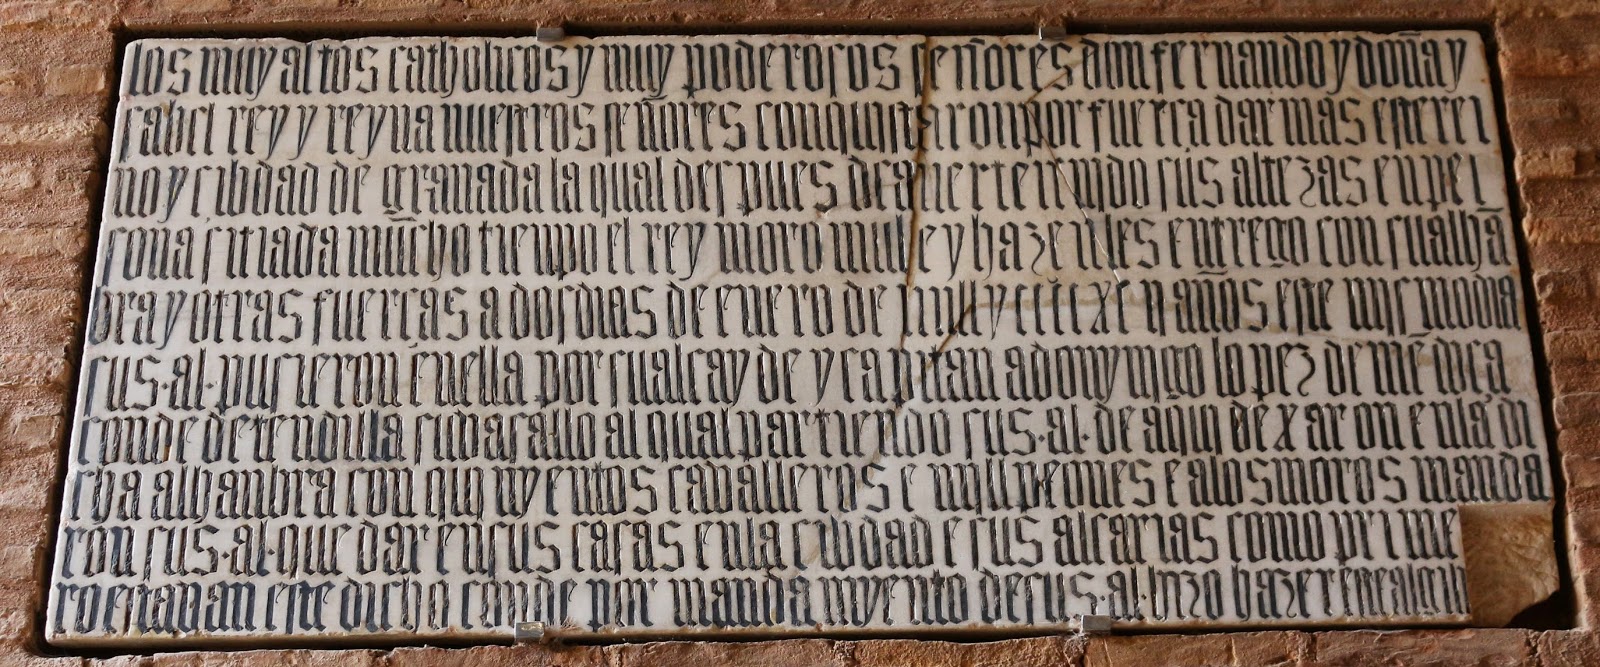 los muy altos catholicos y muy poderosos señores don fernando y doña y
sabel rey y reyna nuestros señores conquistaron por fuerça darmas este rei
no y cibdad de granada la qual despues de aver tenido sus altezas en per
sona sitiada mucho tiempo el rey moro muley hazen les entrego con su alhā
bra y otras fuerças a dos dias de enero de mill y cccc xc ii años este mismo dia
sus · al · pusieron en ella por su alcayde y capitan a don yñigo lopez de mēdoça
conde de tendilla su vasallo al qual partiendo sus · al · de aqui dexaron en la di
cha alhanbra con quinientos cavalleros e mill peones e a los moros manda
ron sus · al · que dar en sus casas en la cibdad e sus alcarias como prime
ro estavan este dicho conde por mandamyento de sus · al · hizo hazer este algib